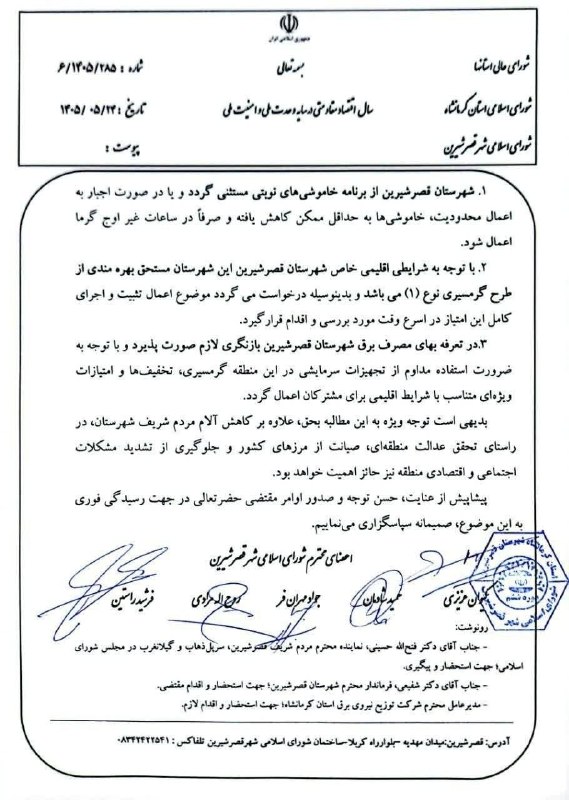 جمهوری اسلامی ایران
شورای عالی استانها
بسمه تعالی
شماره : ۶/۱۴۰۵/۲۸۵
شورای اسلامی استان کرمانشاه
سال اقتصاد مقاومتی در سایه وحدت ملی و امنیت ملی
تاریخ : ۱۴۰۵/۰۵/۲۴
شورای اسلامی شهر قصرشیرین
پیوست :
۱. شهرستان قصرشیرین از برنامه خاموشی‌های نوبتی مستثنی گردد و یا در صورت اجبار به
اعمال محدودیت، خاموشی‌ها به حداقل ممکن کاهش یافته و صرفاً در ساعات غیر اوج گرما
اعمال شود.
۲. با توجه به شرایطی اقلیمی خاص شهرستان قصرشیرین این شهرستان مستحق بهره مندی از
طرح گرمسیری نوع (۱) می باشد و بدینوسیله درخواست می گردد موضوع اعمال تثبیت و اجرای
کامل این امتیاز در اسرع وقت مورد بررسی و اقدام قرارگیرد.
۳.در تعرفه بهای مصرف برق شهرستان قصرشیرین بازنگری لازم صورت پذیرد و با توجه به
ضرورت استفاده مداوم از تجهیزات سرمایشی در این منطقه گرمسیری، تخفیف‌ها و امتیازات
ویژه‌ای متناسب با شرایط اقلیمی برای مشترکان اعمال گردد.
بدیهی است توجه ویژه به این مطالبه بحق، علاوه بر کاهش آلام مردم شریف شهرستان، در
راستای تحقق عدالت منطقه‌ای، صیانت از مرزهای کشور و جلوگیری از تشدید مشکلات
اجتماعی و اقتصادی منطقه نیز حائز اهمیت خواهد بود.
پیشاپیش از عنایت، حسن توجه و صدور اوامر مقتضی حضرتعالی در جهت رسیدگی فوری
به این موضوع، صمیمانه سپاسگزاری می‌نماییم.
اعضای محترم شورای اسلامی شهر قصرشیرین
عزیزی
جواد مهران فر
روح اله مرادی
فرشید راستین
رونوشت:
- جناب آقای دکتر فتح‌الله حسینی، نماینده محترم مردم شریف قصرشیرین، سرپل‌ذهاب و گیلانغرب در مجلس شورای
اسلامی؛ جهت استحضار و پیگیری.
- جناب آقای دکتر شفیعی، فرماندار محترم شهرستان قصرشیرین؛ جهت استحضار و اقدام مقتضی.
- مدیرعامل محترم شرکت توزیع نیروی برق استان کرمانشاه؛ جهت استحضار و اقدام لازم.
آدرس: قصرشیرین:میدان مهدیه -بلوارراه کربلا-ساختمان شورای اسلامی شهرقصرشیرین تلفاکس : ۰۸۳۴۲۴۲۲۵۴۱